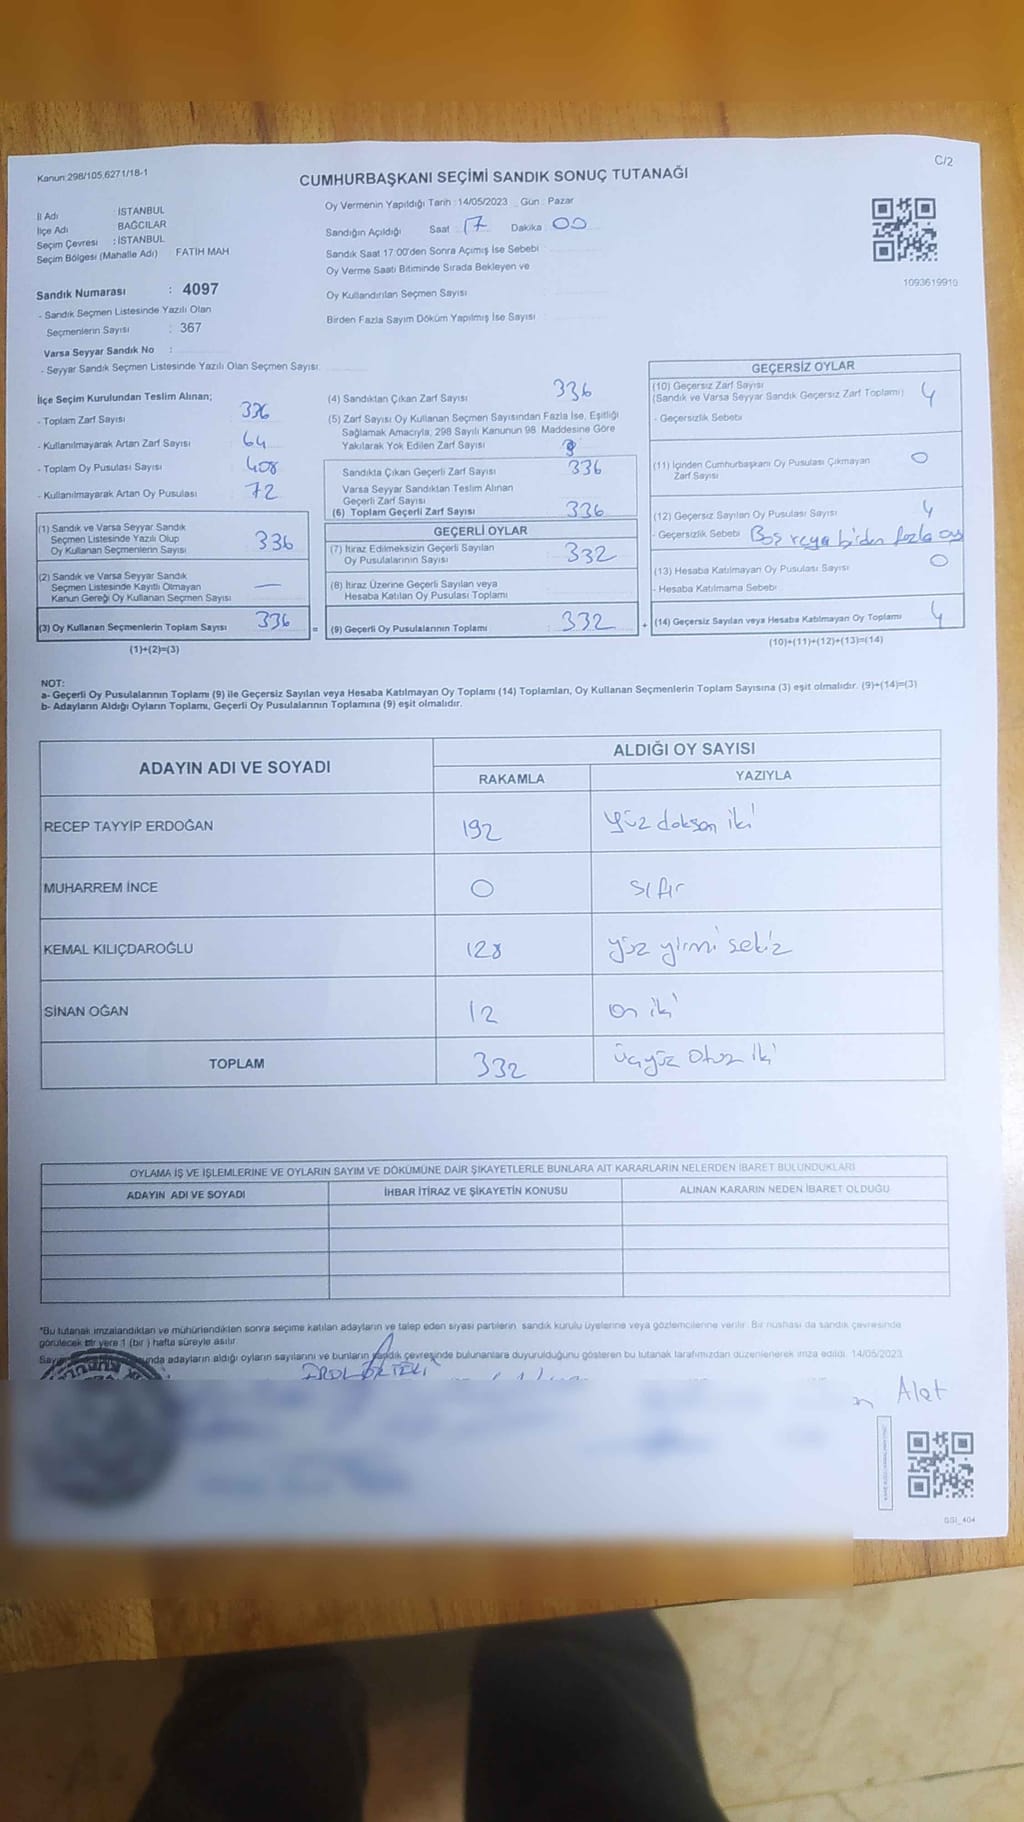 Kanun:298/105,6271/18-1
C/2
CUMHURBAŞKANI SEÇİMİ SANDIK SONUÇ TUTANAĞI
İl Adı : İSTANBUL
İlçe Adı : BAĞCILAR
Seçim Çevresi : İSTANBUL
Seçim Bölgesi (Mahalle Adı) FATİH MAH
Sandık Numarası : 4097
- Sandık Seçmen Listesinde Yazılı Olan
Seçmenlerin Sayısı : 367
Varsa Seyyar Sandık No :
- Seyyar Sandık Seçmen Listesinde Yazılı Olan Seçmen Sayısı:
Oy Vermenin Yapıldığı Tarih : 14/05/2023 Gün : Pazar
Sandığın Açıldığı Saat 17 Dakika : 00
Sandık Saat 17:00'den Sonra Açımış İse Sebebi :
Oy Verme Saati Bitiminde Sırada Bekleyen ve
Oy Kullandırılan Seçmen Sayısı
Birden Fazla Sayım Döküm Yapılmış İse Sayısı :
1093619910
İlçe Seçim Kurulundan Teslim Alınan;
- Toplam Zarf Sayısı
- Kullanılmayarak Artan Zarf Sayısı 64
- Toplam Oy Pusulası Sayısı 408
- Kullanılmayarak Artan Oy Pusulası 72
(1) Sandık ve Varsa Seyyar Sandık
Seçmen Listesinde Yazılı Olup
Oy Kullanan Seçmenlerin Sayısı 336
(2) Sandık ve Varsa Seyyar Sandık
Seçmen Listesinde Kayıtlı Olmayan
Kanun Gereği Oy Kullanan Seçmen Sayısı : —
(3) Oy Kullanan Seçmenlerin Toplam Sayısı 336
(1)+(2)=(3)
(4) Sandıktan Çıkan Zarf Sayısı 336
(5) Zarf Sayısı Oy Kullanan Seçmen Sayısından Fazla İse, Eşitliği
Sağlamak Amacıyla, 298 Sayılı Kanunun 98. Maddesine Göre
Yakılarak Yok Edilen Zarf Sayısı
Sandıkta Çıkan Geçerli Zarf Sayısı 336
Varsa Seyyar Sandıktan Teslim Alınan
Geçerli Zarf Sayısı
(6) Toplam Geçerli Zarf Sayısı 336
GEÇERLİ OYLAR
(7) İtiraz Edilmeksizin Geçerli Sayılan
Oy Pusulalarının Sayısı 332
(8) İtiraz Üzerine Geçerli Sayılan veya
Hesaba Katılan Oy Pusulası Toplamı
= (9) Geçerli Oy Pusulalarının Toplamı 332
GEÇERSİZ OYLAR
(10) Geçersiz Zarf Sayısı
(Sandık ve Varsa Seyyar Sandık Geçersiz Zarf Toplamı) 4
- Geçersizlik Sebebi
(11) İçinden Cumhurbaşkanı Oy Pusulası Çıkmayan
Zarf Sayısı 0
(12) Geçersiz Sayılan Oy Pusulası Sayısı 4
- Geçersizlik Sebebi Boş veya birden fazla oy
(13) Hesaba Katılmayan Oy Pusulası Sayısı 0
- Hesaba Katılmama Sebebi
+ (14) Geçersiz Sayılan veya Hesaba Katılmayan Oy Toplamı 4
(10)+(11)+(12)+(13)=(14)
NOT:
a- Geçerli Oy Pusulalarının Toplamı (9) ile Geçersiz Sayılan veya Hesaba Katılmayan Oy Toplamı (14) Toplamları, Oy Kullanan Seçmenlerin Toplam Sayısına (3) eşit olmalıdır. (9)+(14)=(3)
b- Adayların Aldığı Oyların Toplamı, Geçerli Oy Pusulalarının Toplamına (9) eşit olmalıdır.
ADAYIN ADI VE SOYADI
ALDIĞI OY SAYISI
RAKAMLA YAZIYLA
RECEP TAYYİP ERDOĞAN 192 Yüz doksan iki
MUHARREM İNCE 0 sıfır
KEMAL KILIÇDAROĞLU 128 yüz yirmi sekiz
SİNAN OĞAN 12 on iki
TOPLAM 332 üçyüz otuz iki
OYLAMA İŞ VE İŞLEMLERİNE VE OYLARIN SAYIM VE DÖKÜMÜNE DAİR ŞİKAYETLERLE BUNLARA AİT KARARLARIN NELERDEN İBARET BULUNDUKLARI
ADAYIN ADI VE SOYADI İHBAR İTİRAZ VE ŞİKAYETİN KONUSU ALINAN KARARIN NEDEN İBARET OLDUĞU
*Bu tutanak imzalandıktan ve mühürlendikten sonra seçime katılan adayların ve talep eden siyasi partilerin, sandık kurulu üyelerine veya gözlemcilerine verilir. Bir nüshası da sandık çevresinde
görülecek bir yere 1 (bir ) hafta süreyle asılır.
adayların aldığı oyların sayılarını ve bunların sandık çevresinde bulunanlara duyurulduğunu gösteren bu tutanak tarafımızdan düzenlenerek imza edildi. 14/05/2023
Alat
GSI_404